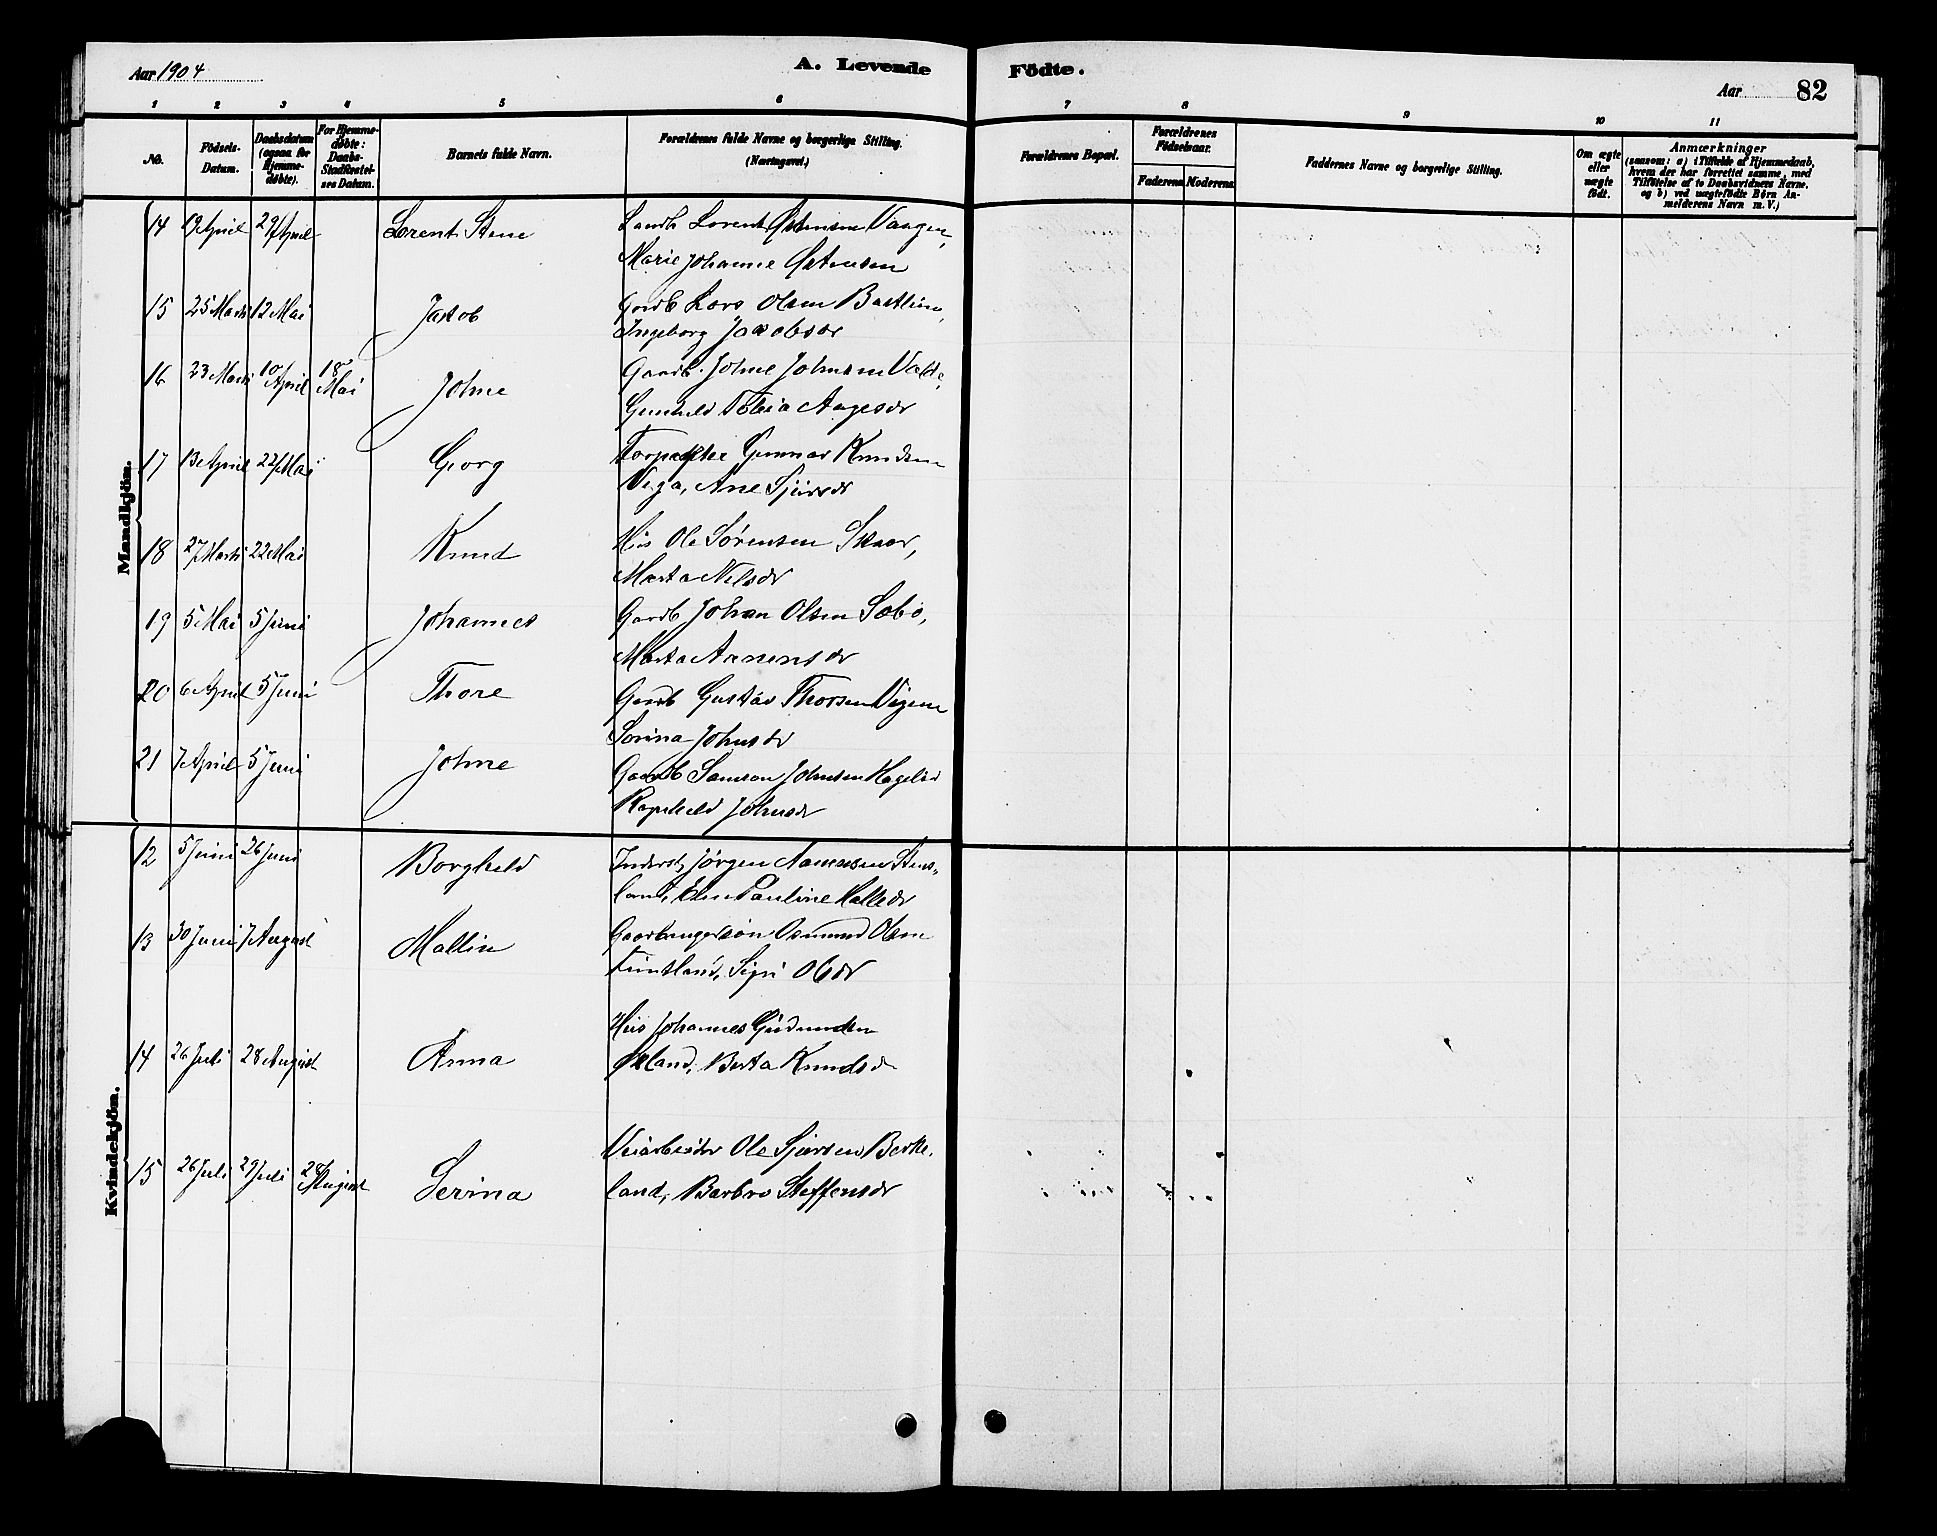 Aar 1904
A. Levende Födte.
Aar 82
1 2 3 4 5 6 7 8 9 10 11
No.
Födsels-Datum.
Daabsdatum (ogsaa for Hjemme-døbte).
For Hjemme-døbte: Daabs-Stadfæstel-ses Datum.
Barnets fulde Navn.
Forældrenes fulde Navne og borgerlige Stilling. (Næringsvei.)
Forældrenes Bopæl.
Forældrenes Födselsaar.
Faderens Moderens
Faddernes Navne og borgerlige Stilling.
Om ægte eller uægte födt.
Anmærkninger
(saasom: a) i Tilfælde af Hjemmedaab, hvem der har forrettet samme, med Tilföielse af to Daabsvidners Navne. og b) ved uægtefödte Börn An-melderens Navn m. V.)
Mandkjön.
14 19 April 29 April Lorent Stene Lorent Vaagen,
Marie Johanne
15 25 Marts 12 Mai Jakob Gardb Lars Olsen
Ingeborg Jacobsdr
16 23 Marts 10 April 18 Mai Johne Gaardb. Johne Johnsen
Gunhild Aagesdr
17 13 April 22 Mai Georg Gunnar Knudsen
Ane
18 27 Marts 22 Mai Knud Hus Ole Sørensen Skaar,
Marta Nelsdr
19 5 Mai 5 Juni Johannes Gardb Johan Olsen Sæbø,
Marta
20 6 April 5 Juni Thore Gardb Gustav Thorsen
Sorina Johnsdr
21 7 April 5 Juni Johne Gaardb Samson Johnsen
Ragnhild Johnsdr
Kvindekjön.
12 5 Juni 26 Juni Borghild Inderst, Jørgen Stens-
land, Pauline
13 30 Juni 7 August Mallin Gaardbrugersøn Osmund Olsen
Olsdr
14 26 Juli 28 August Anna Hus Johannes Gudmundsen
Berta Knudsd
15 26 Juli 29 Juli 28 August Serina Veiarbeider Ole Sjursen Berke-
land, Barbro Steffensdr